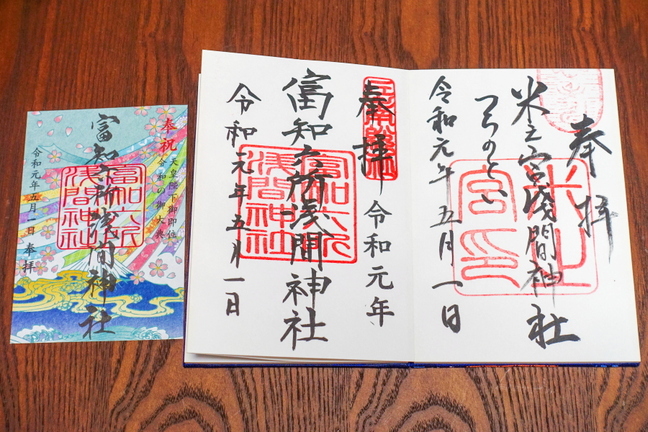 奉拝
米之宮淺間神社
米之
宮印
つちのとい
令和元年五月一日
奉拝
令和元年
富知六所淺間神社
富知六所
淺間神社
令和元年五月一日
奉祝
天皇陛下御即位
令和の御大典
富知六所淺間神社
富知六所
淺間神社
令和元年五月一日 奉拝